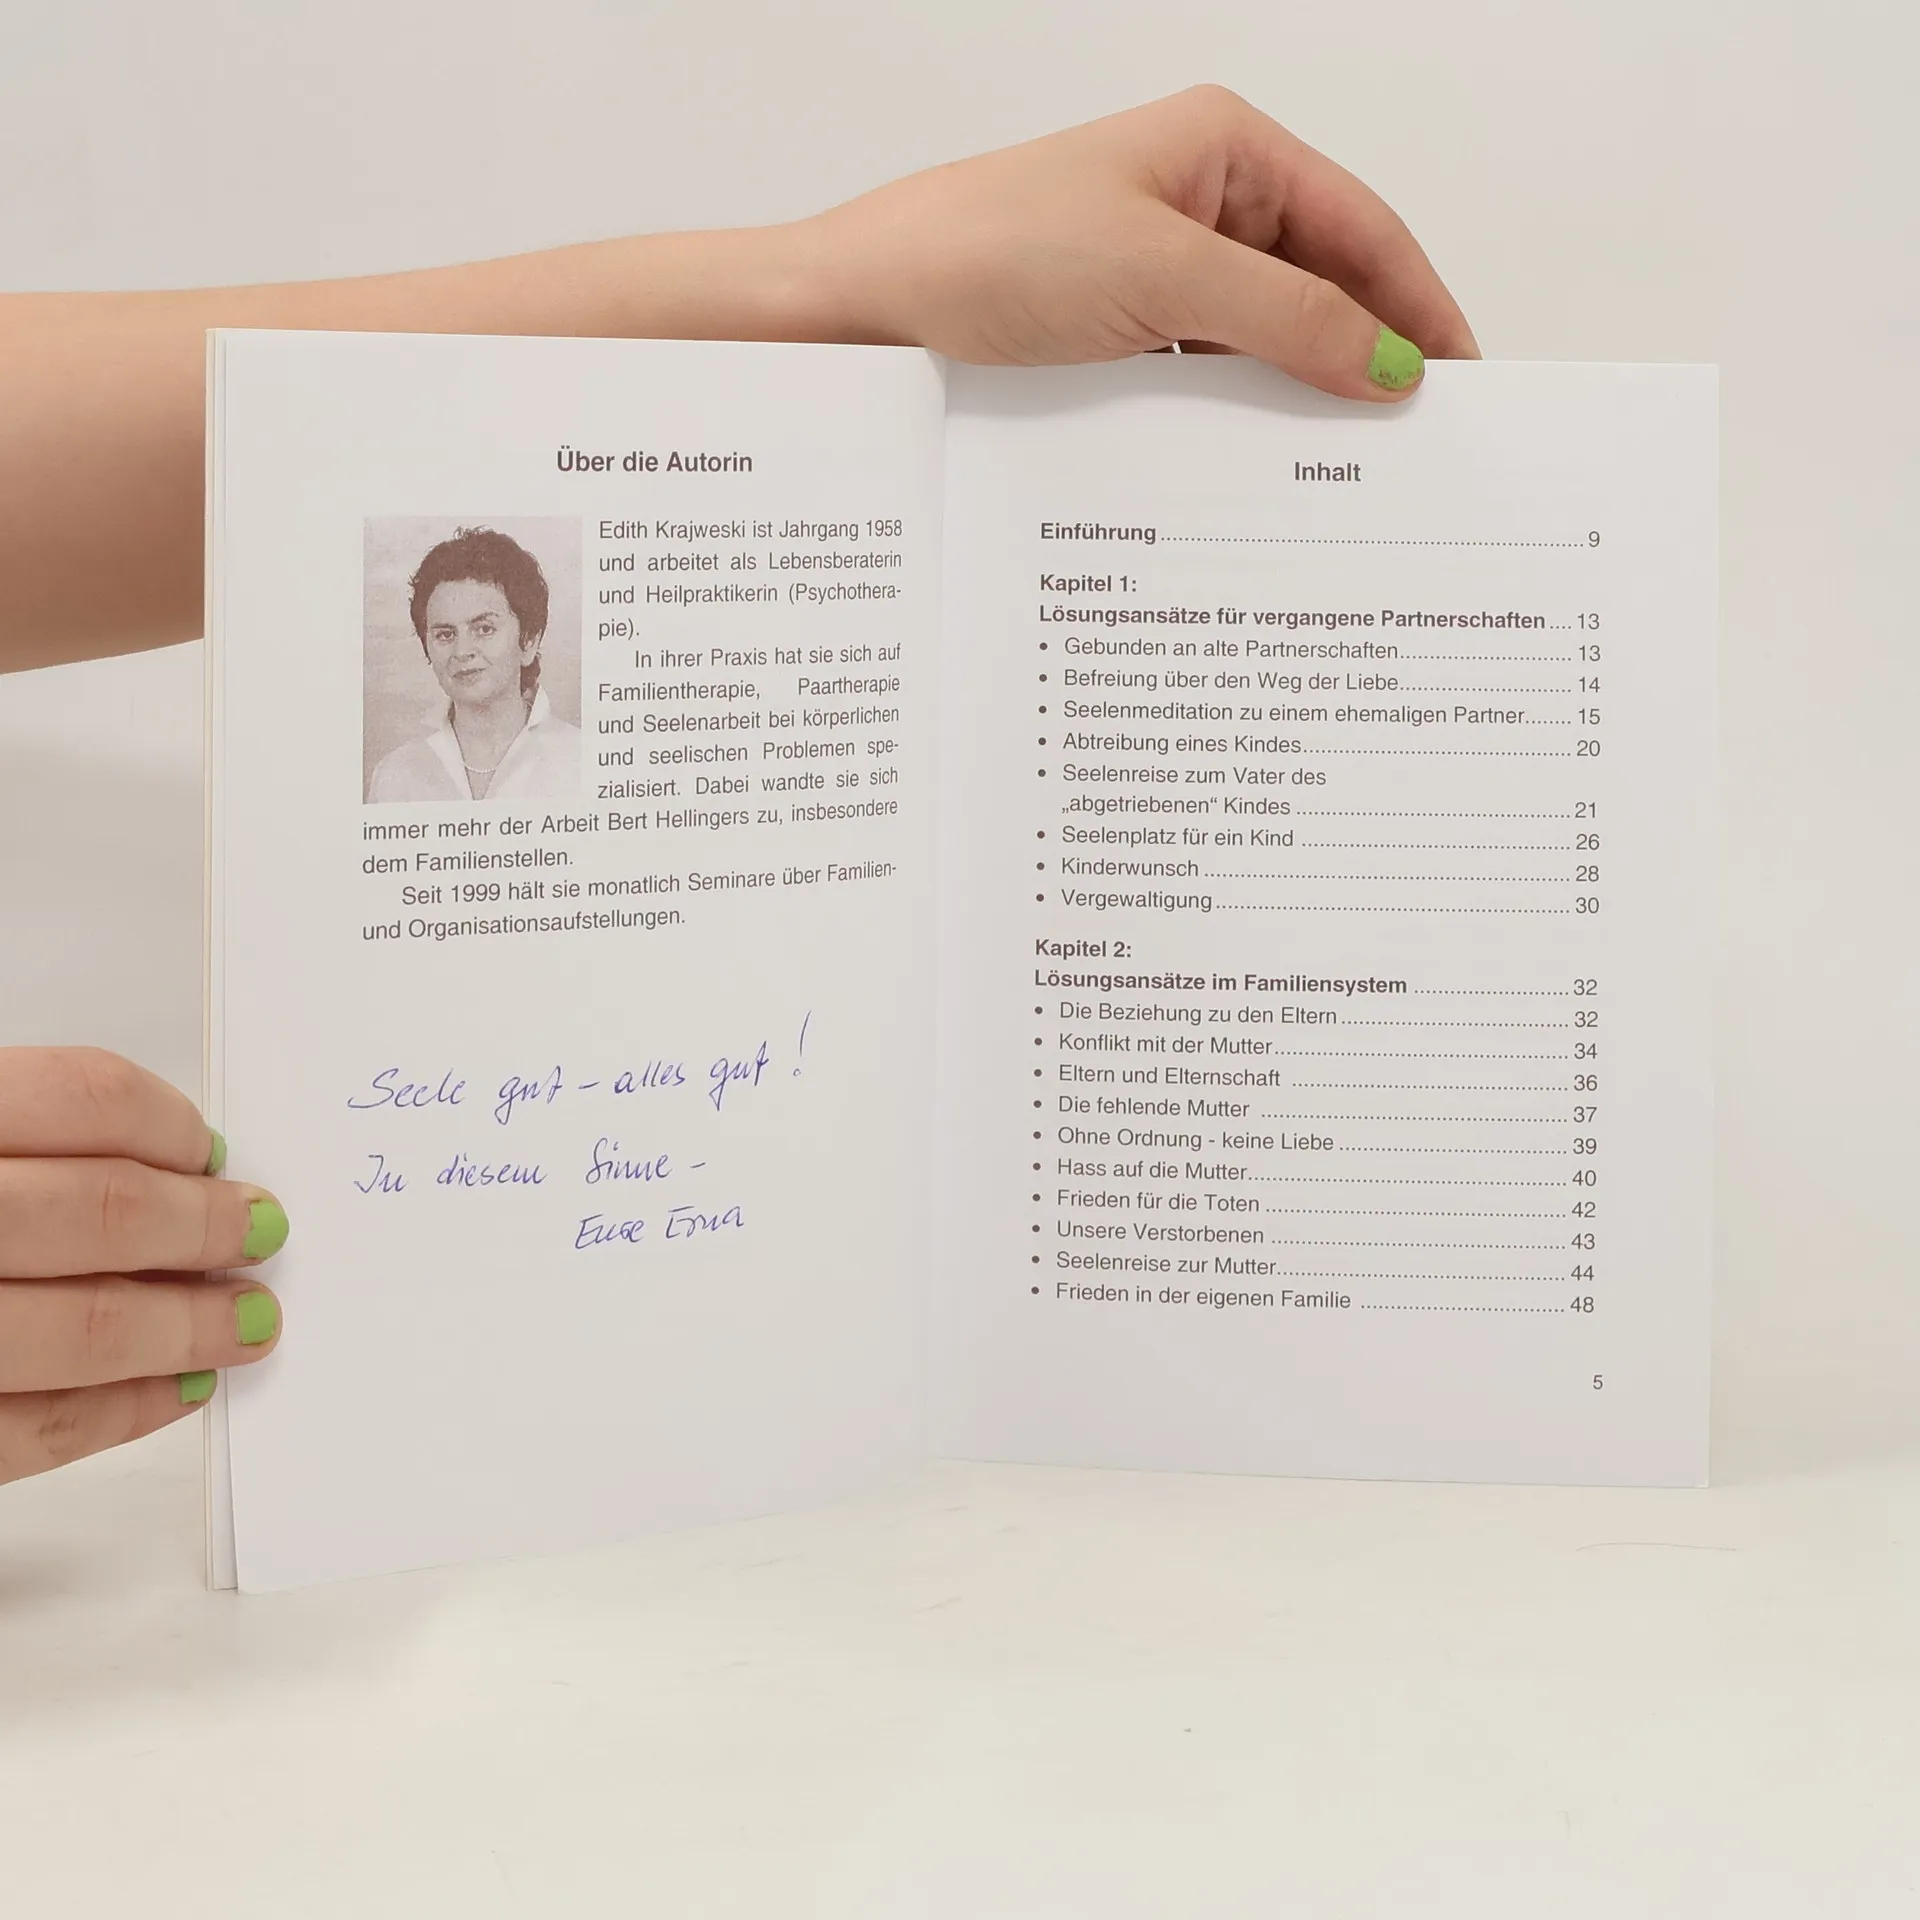 Über die Autorin
Edith Krajweski ist Jahrgang 1958
und arbeitet als Lebensberaterin
und Heilpraktikerin (Psychothera-
pie).
In ihrer Praxis hat sie sich auf
Familientherapie, Paartherapie
und Seelenarbeit bei körperlichen
und seelischen Problemen spe-
zialisiert. Dabei wandte sie sich
immer mehr der Arbeit Bert Hellingers zu, insbesondere
dem Familienstellen.
Seit 1999 hält sie monatlich Seminare über Familien-
und Organisationsaufstellungen.
Seele gut – alles gut !
In diesem Sinne –
Eure Erna
Inhalt
Einführung ........ 9
Kapitel 1:
Lösungsansätze für vergangene Partnerschaften .... 13
• Gebunden an alte Partnerschaften ........ 13
• Befreiung über den Weg der Liebe ........ 14
• Seelenmeditation zu einem ehemaligen Partner ........ 15
• Abtreibung eines Kindes ........ 20
• Seelenreise zum Vater des
„abgetriebenen“ Kindes ........ 21
• Seelenplatz für ein Kind ........ 26
• Kinderwunsch ........ 28
• Vergewaltigung ........ 30
Kapitel 2:
Lösungsansätze im Familiensystem ........ 32
• Die Beziehung zu den Eltern ........ 32
• Konflikt mit der Mutter ........ 34
• Eltern und Elternschaft ........ 36
• Die fehlende Mutter ........ 37
• Ohne Ordnung - keine Liebe ........ 39
• Hass auf die Mutter ........ 40
• Frieden für die Toten ........ 42
• Unsere Verstorbenen ........ 43
• Seelenreise zur Mutter ........ 44
• Frieden in der eigenen Familie ........ 48
5